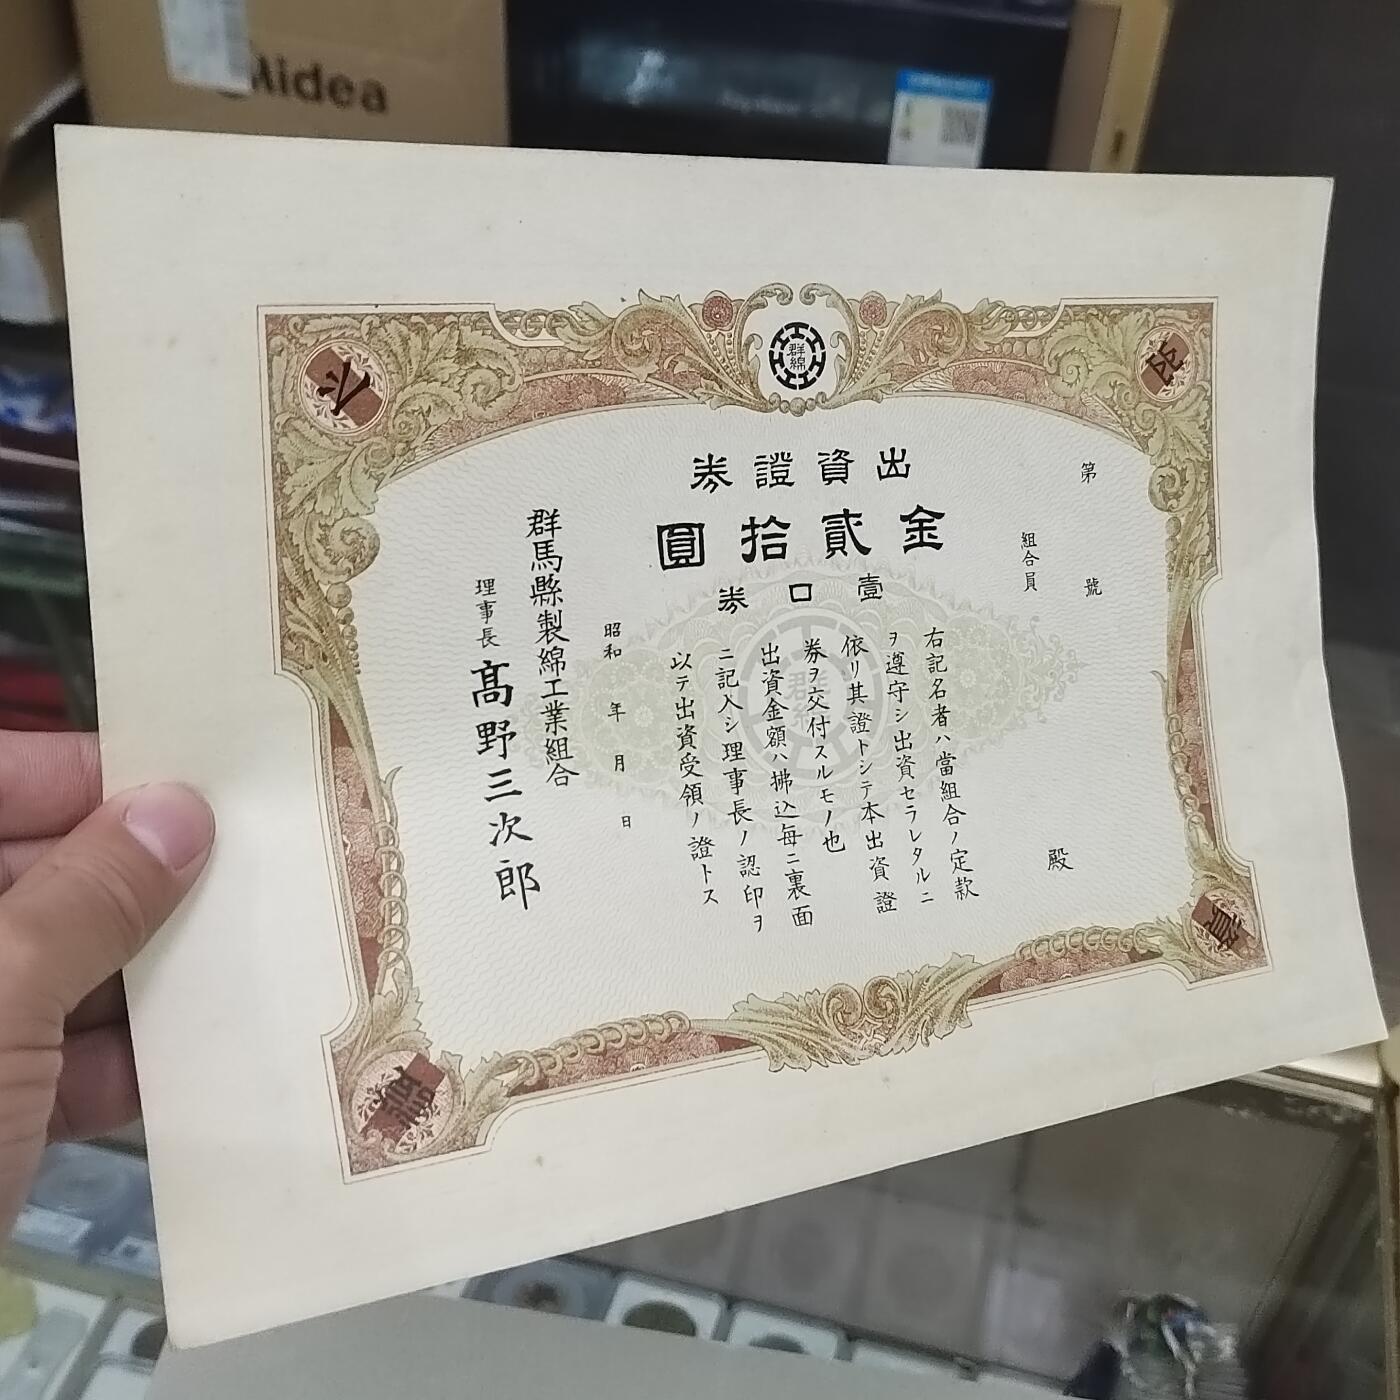 Midea
群綿
出資證券
金貳拾圓
壹口券
第　　號
組合員　　殿
右記名者ハ當組合ノ定款
ヲ遵守シ出資セラレタルニ
依リ其證トシテ本出資證
券ヲ交付スルモノ也
出資金額ハ拂込每ニ裏面
ニ記入シ理事長ノ認印ヲ
以テ出資受領ノ證トス
昭和　年　月　日
群馬縣製綿工業組合
理事長 髙野三次郎